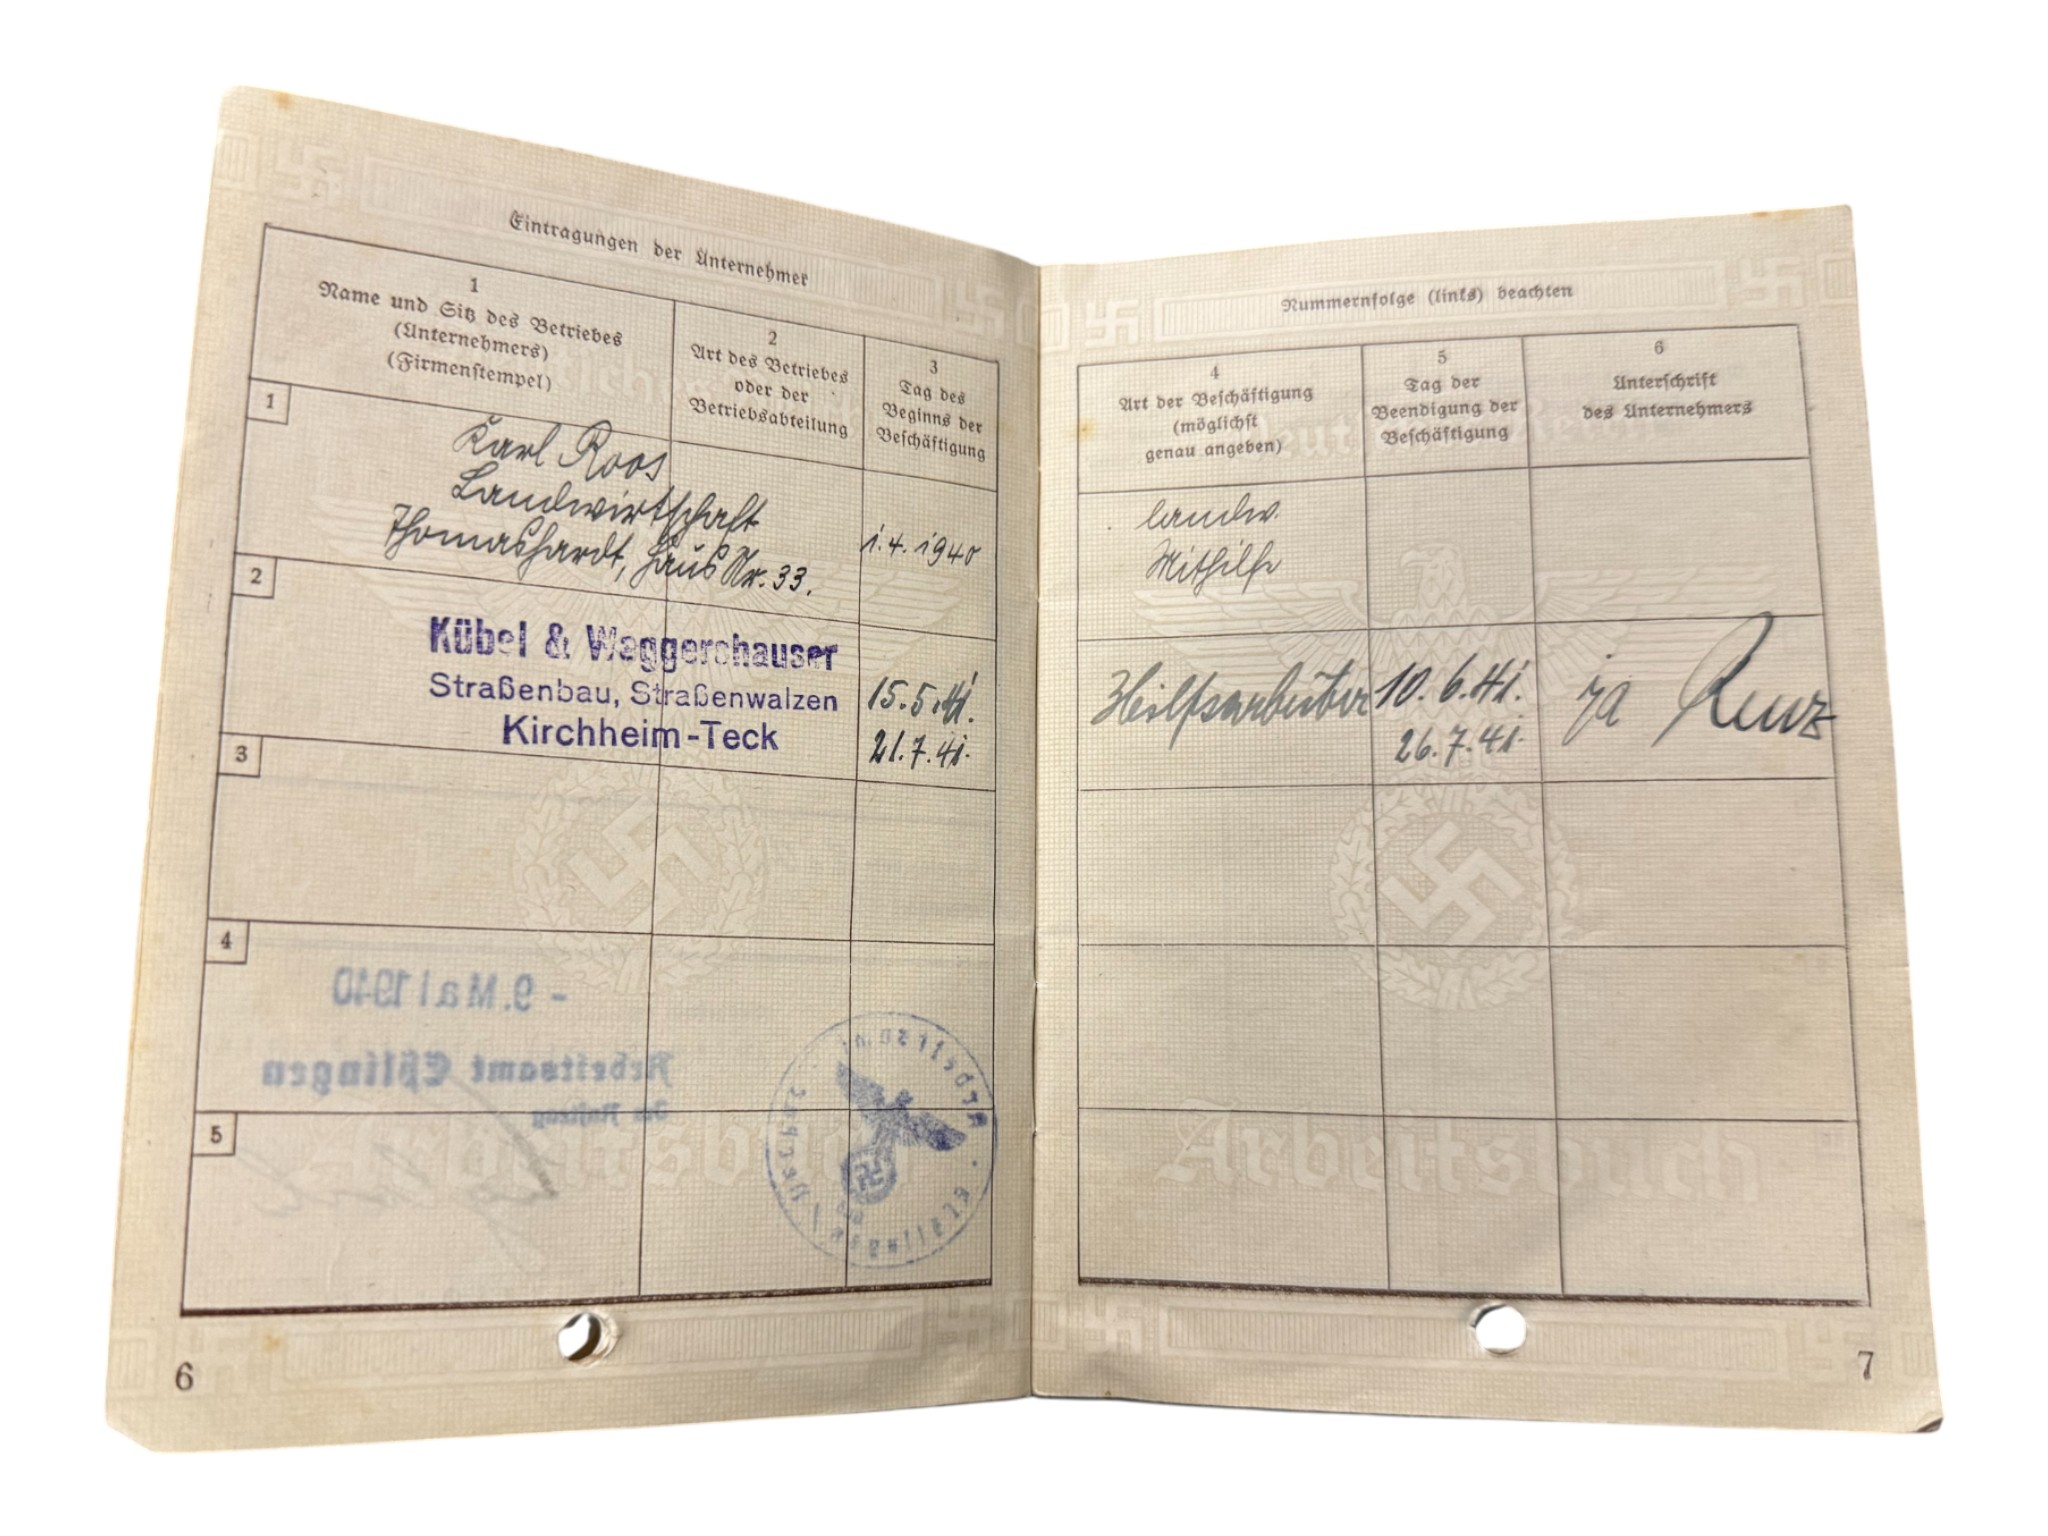 Eintragungen der Unternehmer
1
Name und Sitz des Betriebes
(Unternehmers)
(Firmenstempel)
2
Art des Betriebes
oder der
Betriebsabteilung
3
Tag des
Beginns der
Beschäftigung
1
Karl Roos
Landwirtschaft
Thomashardt, Haus Nr. 33.
1.4.1940
2
Kübel & Waggershauser
Straßenbau, Straßenwalzen
Kirchheim-Teck
15.5.41.
21.7.41.
3
4
- 9. Mai 1940
Arbeitsamt Eßlingen
5
6
Nummernfolge (links) beachten
4
Art der Beschäftigung
(möglichst
genau angeben)
5
Tag der
Beendigung der
Beschäftigung
6
Unterschrift
des Unternehmers
landw.
Mithilfe
Hilfsarbeiter
10.6.41.
26.7.41.
Renz
Deutsches Reich
Arbeitsbuch
Arbeitsbuch
7